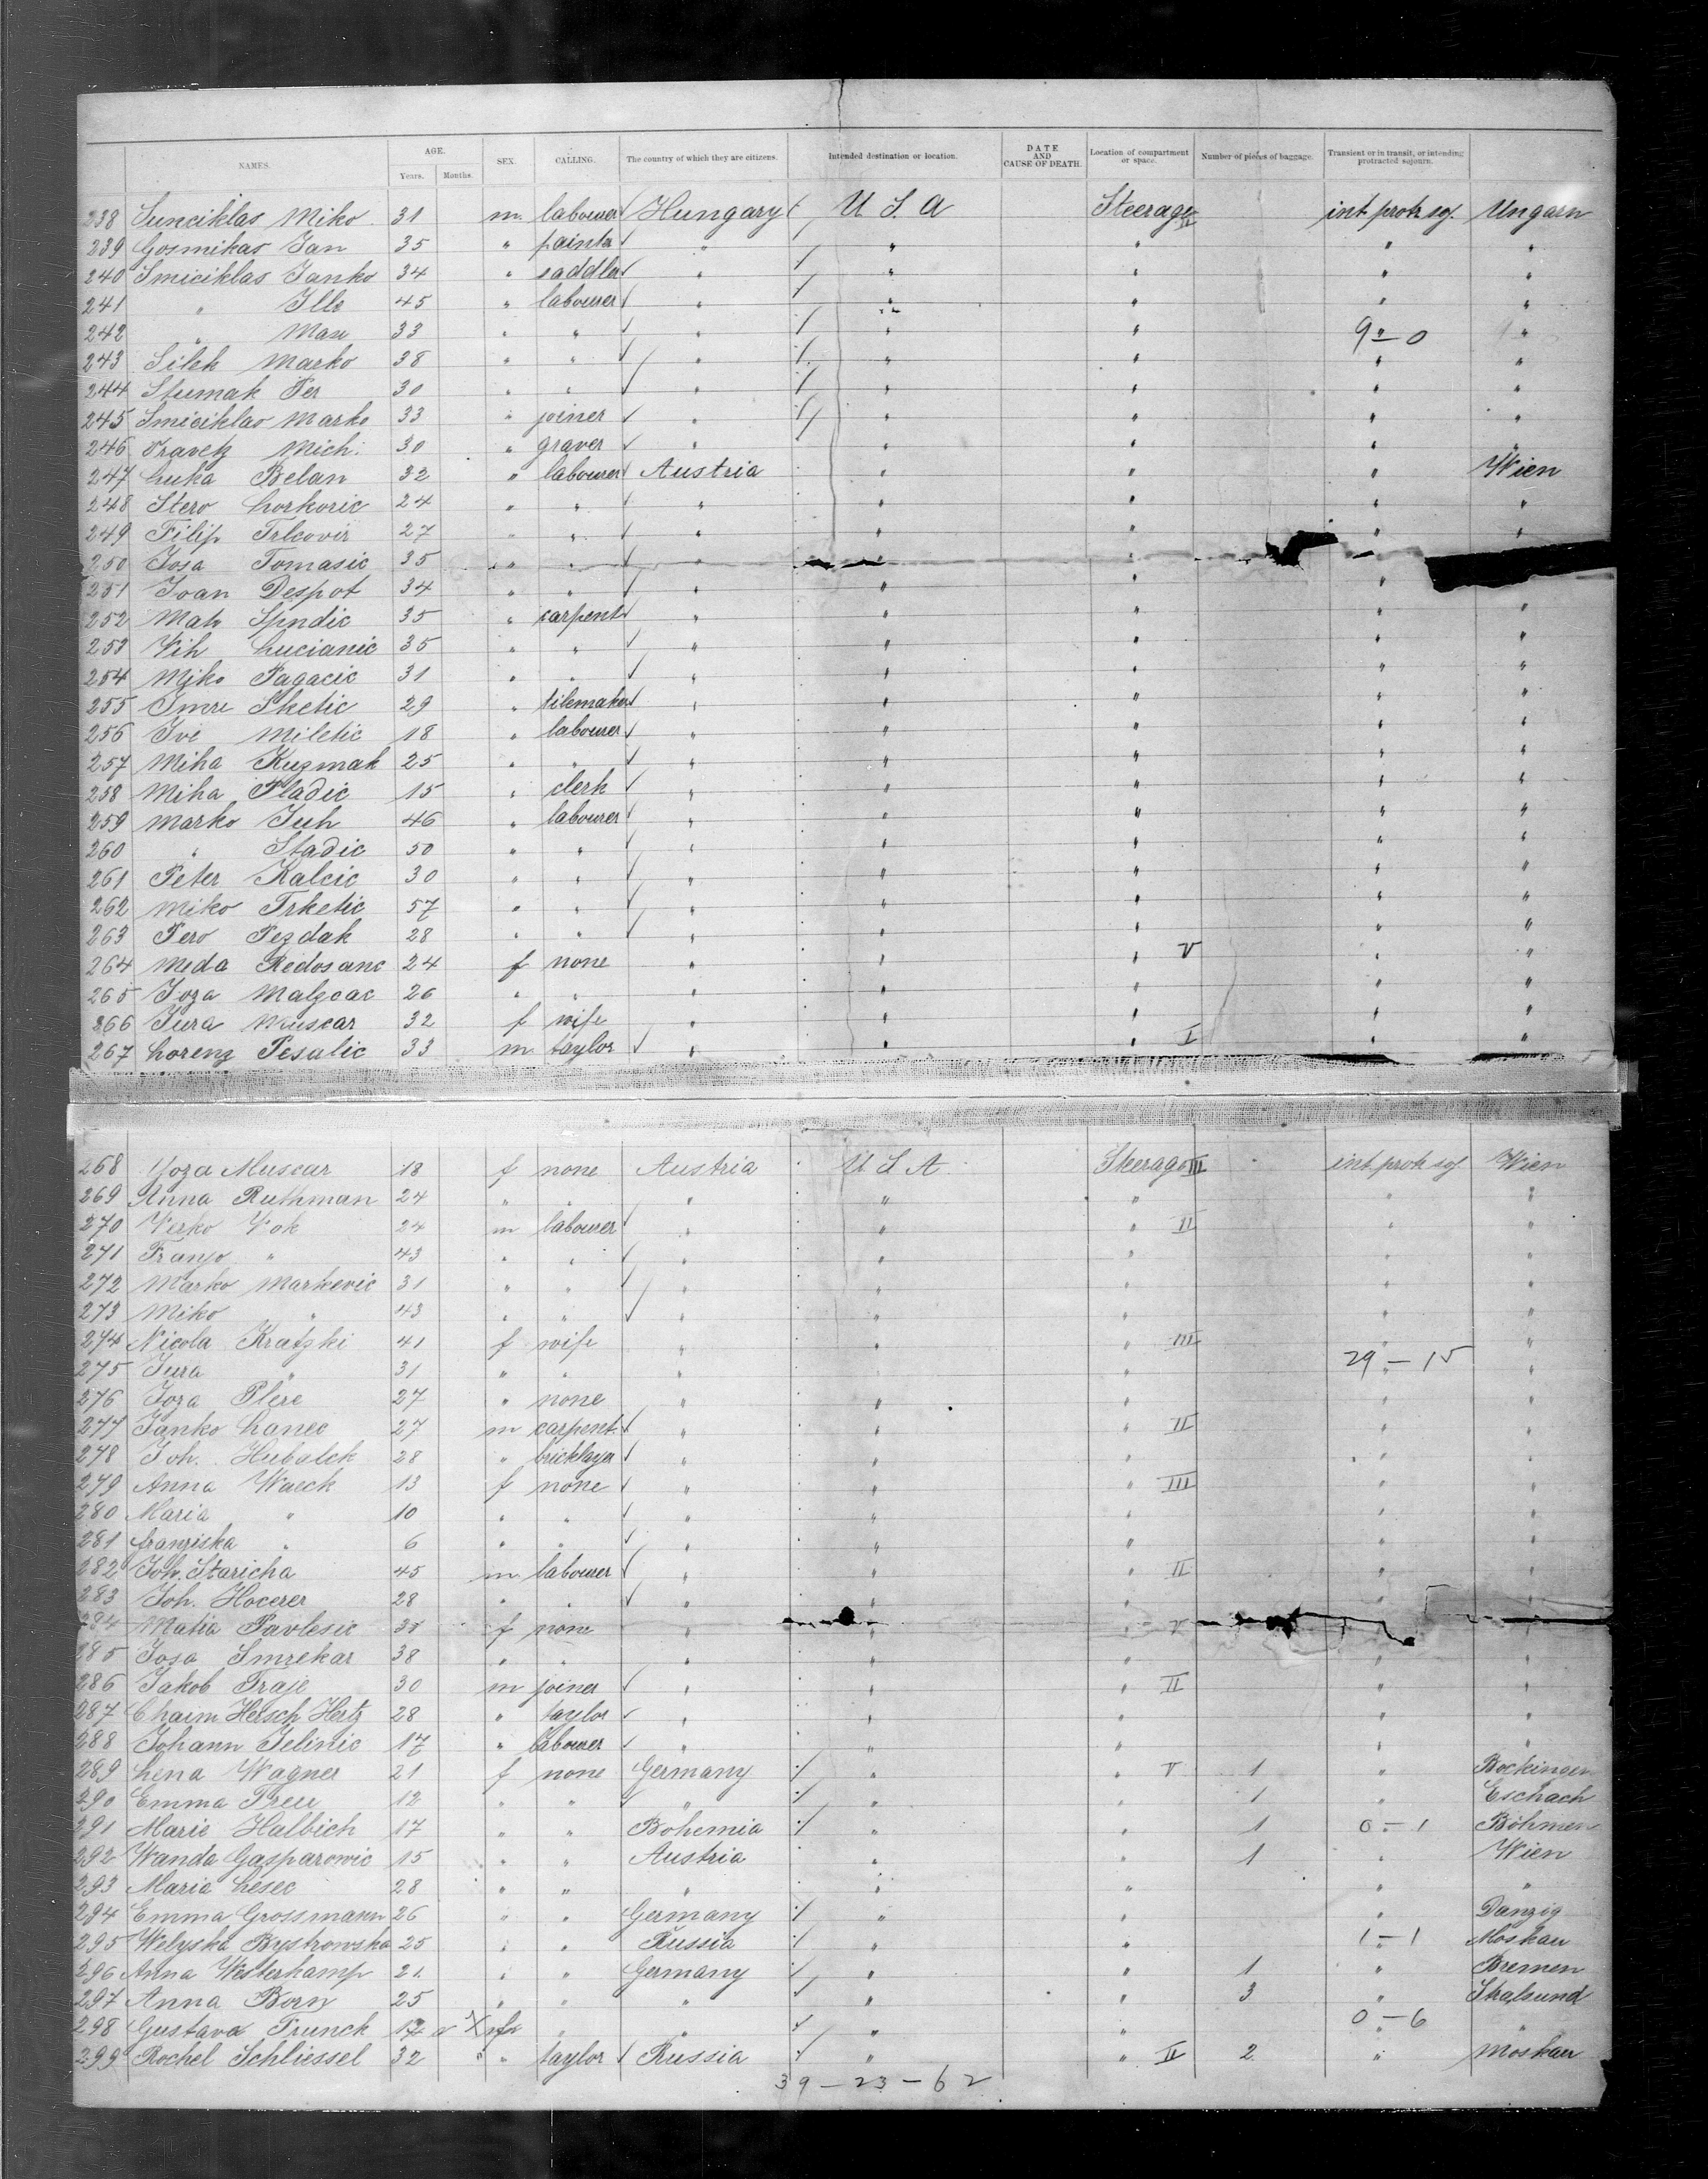 NAMES. AGE. Years. Months. SEX. CALLING. The country of which they are citizens. Intended destination or location. DATE AND CAUSE OF DEATH. Location of compartment or space. Number of pieces of baggage. Transient or in transit, or intending protracted sojourn.
238 Sunciklas Miko 31 m. labourer Hungary U S A Steerage II int. protr. soj. Ungarn
239 Gosmikar Jan 35 " painter " " " " "
240 Smiciklas Janko 34 " saddler " " " " "
241 " Ille 45 " labourer " " " " "
242 " Man 33 " " " " " 9 - 0 "
243 Silek Marko 38 " " " " " " "
244 Stumak Per 30 " " " " " " "
245 Smiciklas Marko 33 " joiner " " " " "
246 Travetz Mich. 30 " graver " " " " "
247 Luka Belan 32 " labourer Austria " " " Wien
248 Stero Lorkoric 24 " " " " " " "
249 Filip Trlcovir 27 " " " " " " "
250 Josa Tomasic 35 " " " "
251 Joan Despot 34 " " " " " "
252 Mato Spndic 35 " carpent " " " "
253 Vih Lucianic 35 " " " " " " "
254 Miko Pagacic 31 " " " " " " "
255 Imre Sketic 29 " tilemaker " " " " "
256 Ive Miletic 18 " labourer " " " " "
257 Miha Kuzmak 25 " " " " " " "
258 Miha Pladic 15 " clerk " " " " "
259 Marko Juh 46 " labourer " " " " "
260 " Stadic 50 " " " " " " "
261 Peter Kalcic 30 " " " " " " "
262 Miko Trketic 57 " " " " " " "
263 Pero Pezdak 28 " " " " " " "
264 Meda Redosanc 24 f none " " " V " "
265 Joza Malzcac 26 " " " " " " "
266 Jura Muscar 32 f wife " " " " "
267 Lorenz Pesulic 33 m taylor " " " I " "
268 Joza Muscar 18 f none Austria U S A Steerage III int. protr. soj. Wien
269 Anna Ruthman 24 " " " " " " "
270 Verko Vok 24 m labourer " " " II " "
271 Franjo " 43 " " " " " "
272 Marko Markevic 31 " " " " " " "
273 Miko " 43 " " " " " " "
274 Nicola Kratzki 41 f wife " " " III " "
275 Jura " 31 " " " " 29 - 15 "
276 Joza Plere 27 " none " " " " "
277 Janko Lanec 27 m carpent. " " " II " "
278 Joh. Hubalek 28 " bricklayer " " " " "
279 Anna Waeck 13 f none " " " III " "
280 Maria " 10 " " " " " " "
281 franziska " 6 " " " " " " "
282 Joh. Staricha 45 m labourer " " " II " "
283 Joh. Hocerer 28 " " " " "
284 Matia Pavlesic f none " " " V
285 Josa Smrekar 38 " " " " " " "
286 Jakob Traje 30 m joiner " " " II " "
287 Chaim Hersch Hertz 28 " taylor " " " " "
288 Johann Jelinic 17 " labourer " " " " "
289 Lena Wagner 21 f none Germany " " V 1 " Bockingen
290 Emma Freu 12 " " " " " 1 " Eschach
291 Marie Halbich 17 " " Bohemia " " 1 0 - 1 Böhmen
292 Wanda Gasparowic 15 " " Austria " 1 " Wien
293 Maria Lesec 28 " " " " " " "
294 Emma Grossmann 26 " " Germany " " " Danzig
295 Welyska Bystrowska 25 " " Russia " " 1 - 1 Moskau
296 Anna Westerkamp 21 " " Germany " " 1 " Bremen
297 Anna Born 25 " " " " " 3 " Stralsund
298 Gustava Trunck 17 " " " " 0 - 6 "
299 Rochel Schliessel 32 " taylor Russia " " II 2 " Moskau
39 - 23 - 62